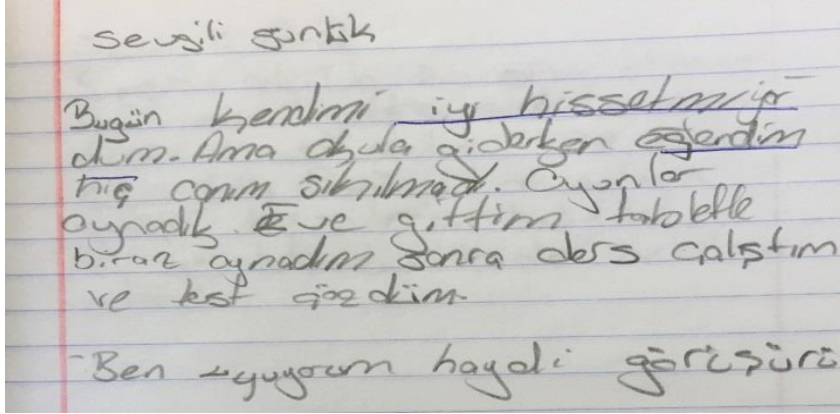 Sevgili günlük
Bugün kendimi iyi hissetmiyor
dum. Ama okula giderken eğlendim
hiç canım sıkılmadı. Oyunlar
oynadık. Eve gittim tabletle
biraz oynadım sonra ders çalıştım
ve test çözdüm.
Ben uyuyorum haydi görüşürü